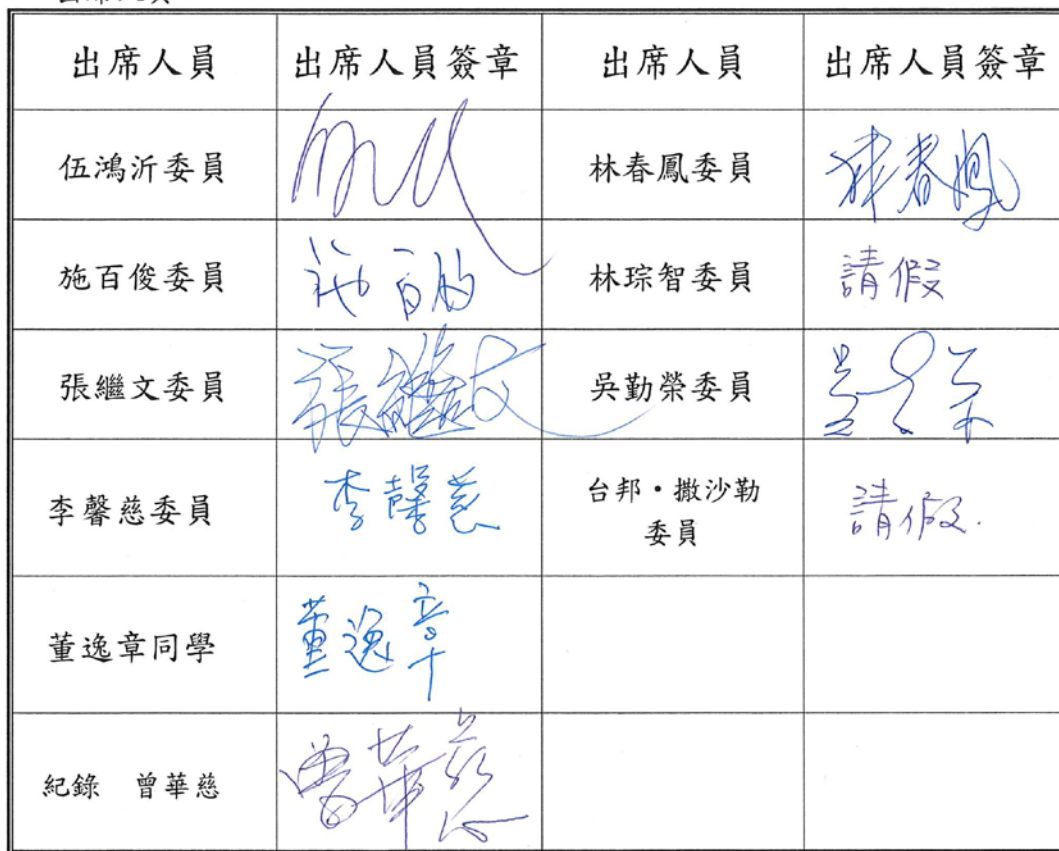 出席人員 出席人員簽章 出席人員 出席人員簽章
伍鴻沂委員 林春鳳委員 林春鳳
施百俊委員 施百俊 林琮智委員 請假
張繼文委員 張繼文 吳勤榮委員
李馨慈委員 李馨慈 台邦・撒沙勒
委員 請假.
董逸章同學 董逸章
紀錄 曾華慈 曾華慈